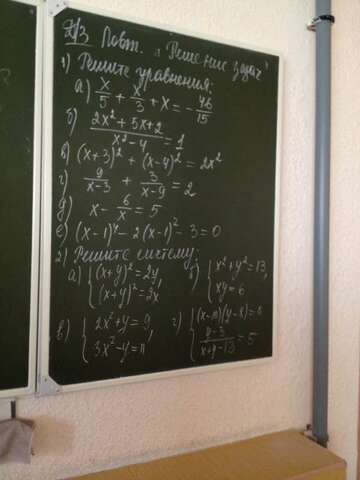 Д/З Повт. "Решение задач"
1) Решите уравнения:
а) x/5 + x/3 + x = -46/15
б) (2x² + 5x + 2)/(x² - 4) = 1
в) (x+3)² + (x-4)² = 2x²
г) 9/(x-3) + 3/(x-9) = 2
д) x - 6/x = 5
е) (x-1)⁴ - 2(x-1)² - 3 = 0
2) Решите систему:
а) { (x+y)² = 2y, (x+y)² = 2x
б) { x² + y² = 13, xy = 6
в) { 2x² + y = 9, 3x² - y = 11
г) { y-3/x+y-13 = 5